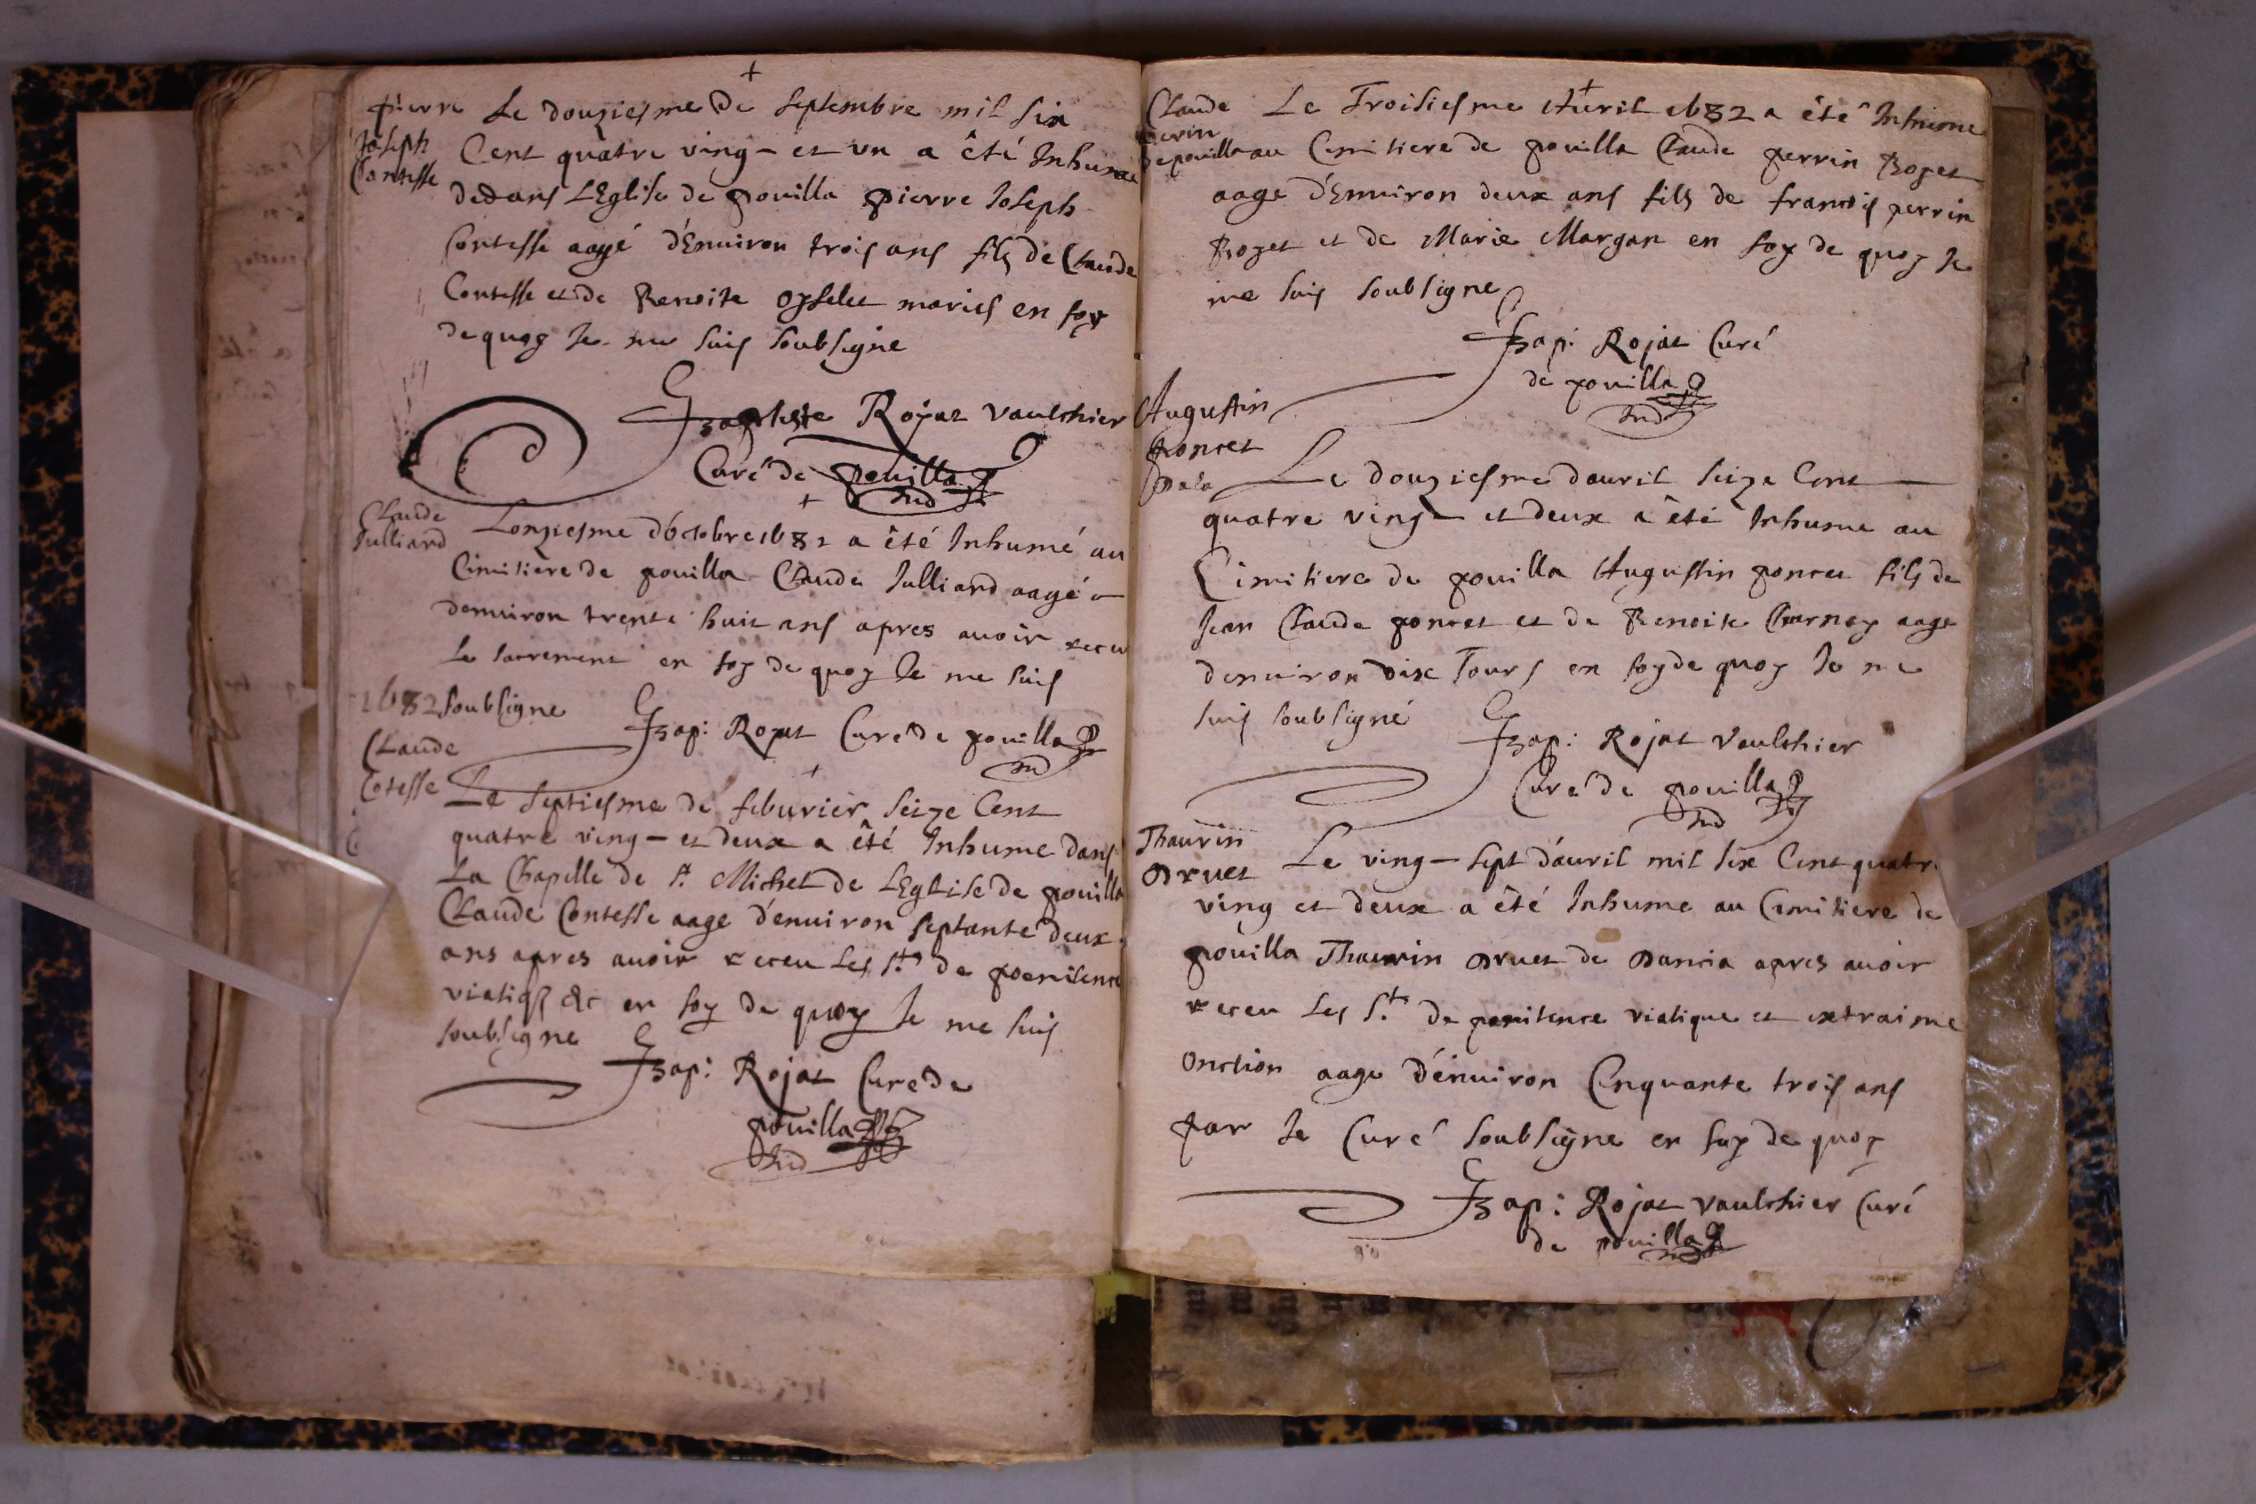 +
pierre
Joseph
Contesse
Le douziesme de septembre mil six
Cent quatre ving- et un a êté Inhumé
dedans LEglise de pouilla pierre Joseph
Contesse aagé d'Enuiron trois ans fils de Claude
Contesse et de Benoite oyselet mariés en foy
de quoy Je me suis soubsigne
Baptiste Rojat Vaulchier
Curé de pouilla
+
Claude
Julliard
L'onziesme d'octobre 1681 a êté Inhumé au
Cimitiere de pouilla Claude Julliard aagé
d'enuiron trente huit ans apres auoir receu
le sacrement en foy de quoy Je me suis
soubsigne
Bap: Rojat Curé de pouilla
1682
+
Claude
Cotesse
Le septiesme de feburier seize Cent
quatre ving- et deux a êté Inhume dans
La Chapelle de st. Michel de LEglise de pouilla
Claude Contesse aage d'enuiron septante deux
ans apres auoir receu les sts. de poenitence
viatiq &c en foy de quoy Je me suis
soubsigne
Bap: Rojat Curé de
pouilla
+
Claude
perrin
de pouilla
Le Troisiesme Auril 1682 a êtê Inhume
au Cimitiere de pouilla Claude perrin Boyet
aage d'Enuiron deux ans fils de francois perrin
Boyet et de Marie Margan en foy de quoy Je
me suis soubsigne
Bap: Rojat Curé
de pouilla
Augustin
poncet
Le douziesme d'auril seize Cent
quatre ving- et deux a êté Inhume au
Cimitiere de pouilla Augustin poncet fils de
Jean Claude poncet et de Benoite Charnay aage
d'enuiron dix Jours en foy de quoy Je me
suis soubsigné
Bap: Rojat Vaulchier
Curé de pouilla
Thaurin
Druet
Le ving- sept d'auril mil six Cent quatre
ving et deux a êté Inhume au Cimitiere de
pouilla Thaurin Druet de Dancia apres auoir
receu les sts. de penitence viatique et extraime
onction aage d'énuiron Cinquante trois ans
par Je Curé soubsigne en foy de quoy
Bap: Rojat Vaulchier Curé
de pouilla